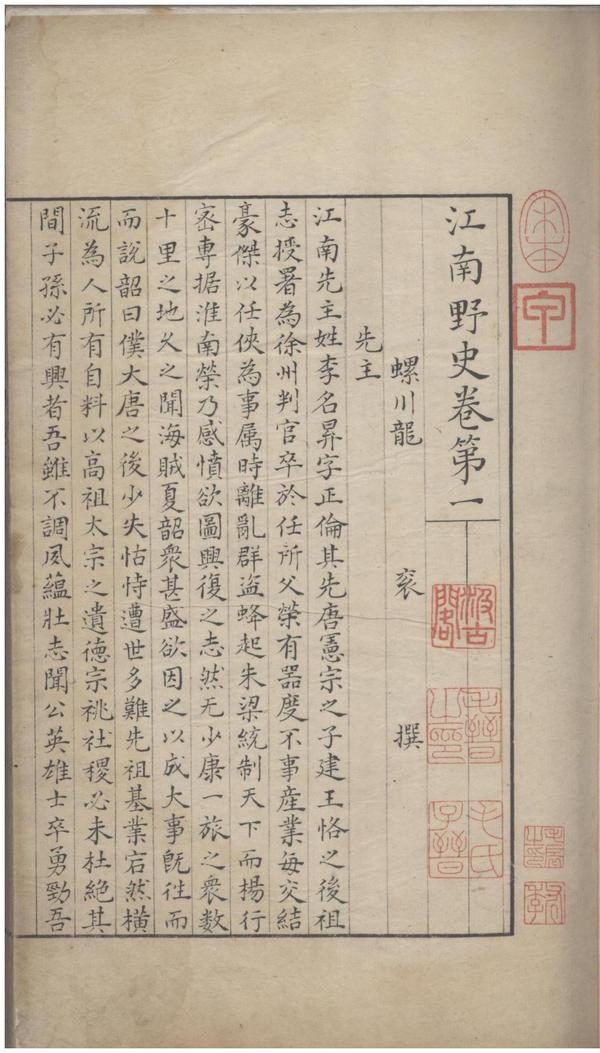 江南野史卷第一
螺川龍 袞 撰
先主
江南先主姓李名昪字正倫其先唐憲宗之子建王恪之後祖
志授署為徐州判官卒於任所父榮有器度不事産業每交結
豪傑以任俠為事属時離亂群盗蜂起朱梁統制天下而揚行
宻専据淮南榮乃感憤欲圖興復之志然无少康一旅之衆数
十里之地乆之聞海賊夏韶衆甚盛欲因之以成大事旣徃而
而說韶曰僕大唐之後少失怙恃遭世多難先祖基業宕然橫
流為人所有自料以高祖太宗之遺德宗祧社稷必未杜絶其
間子孫必有興者吾雖不調夙蘊壯志聞公英雄士卒勇勁吾
宋本
甲
汲古閣
毛晉之印
毛氏子晉